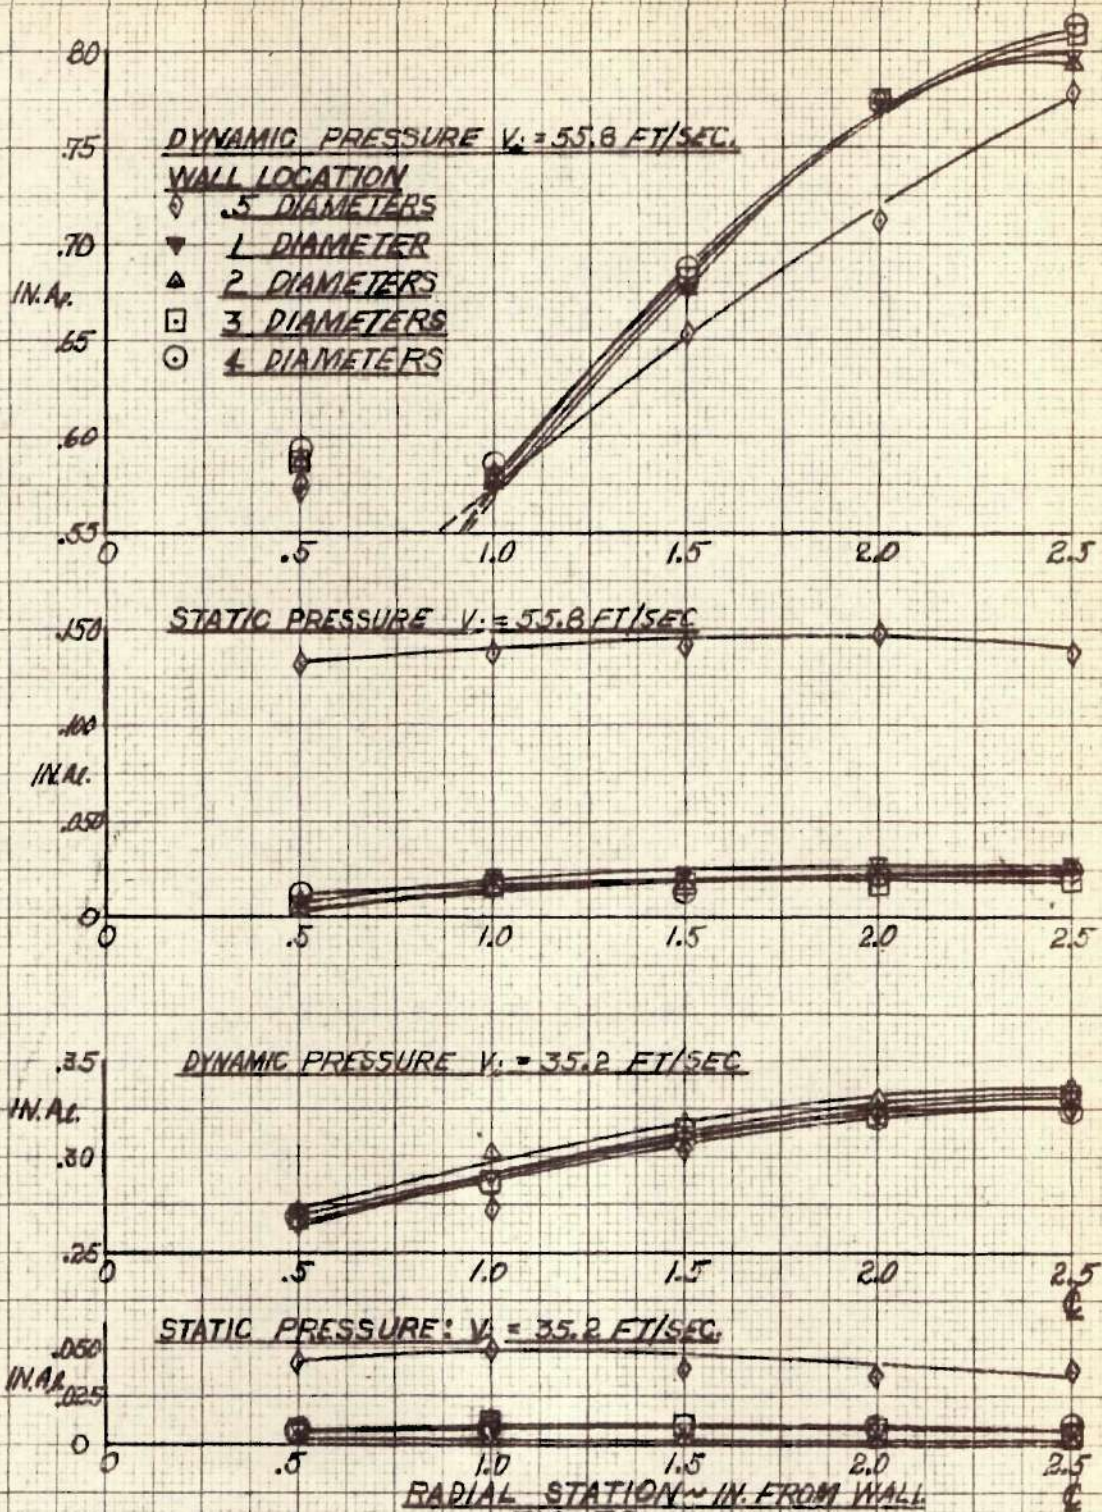 .80
DYNAMIC PRESSURE Vi = 55.8 FT/SEC.
.75
WALL LOCATION
.5 DIAMETERS
.70
1 DIAMETER
IN. AL.
2 DIAMETERS
3 DIAMETERS
.65
4 DIAMETERS
.60
.55
0 .5 1.0 1.5 2.0 2.5
STATIC PRESSURE Vi = 55.8 FT/SEC
.150
.100
IN. AL.
.050
0
0 .5 1.0 1.5 2.0 2.5
.35
DYNAMIC PRESSURE Vi = 35.2 FT/SEC
IN. AL.
.30
.25
0 .5 1.0 1.5 2.0 2.5
℄
STATIC PRESSURE: Vi = 35.2 FT/SEC.
.050
IN. AL.
.025
0
0 .5 1.0 1.5 2.0 2.5
RADIAL STATION ~ IN. FROM WALL
℄